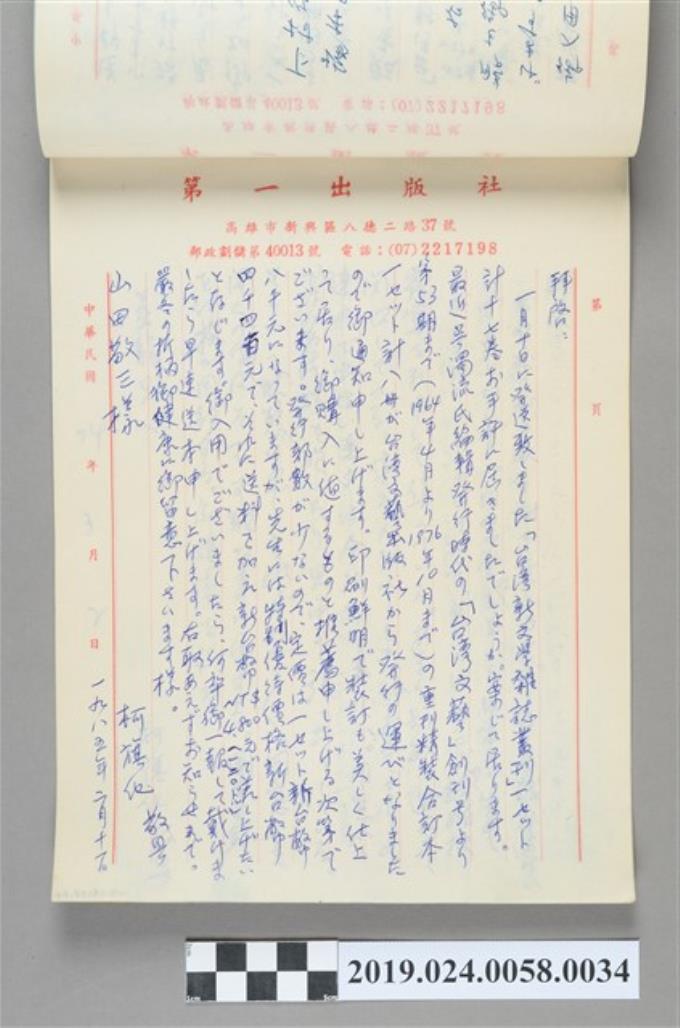 第一出版社
高雄市新興區八德二路37號
郵政劃儲第40013號 電話：(07)2217198
第 頁
拝啓：
一月十日に発送致しました「台湾新文学雑誌叢刊」一セット
計十七巻お手許に届きましたでしょうか。案じて居ります。
最近、呉濁流氏編輯発行時代の「台湾文藝」創刊号より
第53期まで（1964年4月より1976年10月まで）の重刊精装合訂本
一セット計八冊が台湾文藝出版社から発行の運びとなりました
ので御通知申し上げます。印刷鮮明で装訂も美しく仕上
って居り、御購入に値するものと推薦申し上げる次第で
ございます。発行部数が少ないので、定価は一セット新台幣
八千元になっていますが、先生には特別優待価格新台幣
四千四百元で、それに送料を加え新台幣 で差上げたい
と存じます。御入用でございましたら、何卒御一報して戴けま
したら早速送本申し上げます。右取あえずお知らせまで。
厳冬の折柄御健康に御留意下さいます様。
柯旗化 敬具
山田敬三様
一九八五年二月十一日
中華民國 年 月 日
2019.024.0058.0034